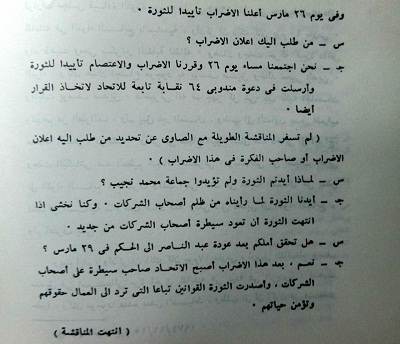 وفى يوم ٢٦ مارس أعلنا الاضراب تأييدا للثورة ٠
س ــ من طلب اليك اعلان الاضراب ؟
جـ ــ نحن اجتمعنا مساء يوم ٢٦ وقررنا الاضراب والاعتصام تأييدا للثورة
وأرسلت فى دعوة مندوبى ٦٤ نقابة تابعة للاتحاد لاتخاذ القرار
أيضا ٠
( لم تسفر المناقشة الطويلة مع الصاوى عن تحديد من طلب اليه اعلان
الاضراب أو صاحب الفكرة فى هذا الاضراب ) ٠
س ــ لماذا أيدتم الثورة ولم تؤيدوا جماعة محمد نجيب ؟
جـ ــ أيدنا الثورة لما رأيناه من ظلم أصحاب الشركات ٠ وكنا نخشى اذا
انتهت الثورة أن تعود سيطرة أصحاب الشركات من جديد ٠
س ــ هل تحقق أملكم بعد عودة عبد الناصر الى الحكم فى ٢٩ مارس ؟
جـ ــ نعم ، بعد هذا الاضراب أصبح الاتحاد صاحب سيطرة على أصحاب
الشركات ، وأصدرت الثورة القوانين تباعا التى ترد الى العمال حقوقهم
وتؤمن حياتهم ٠
( انتهت المناقشة )